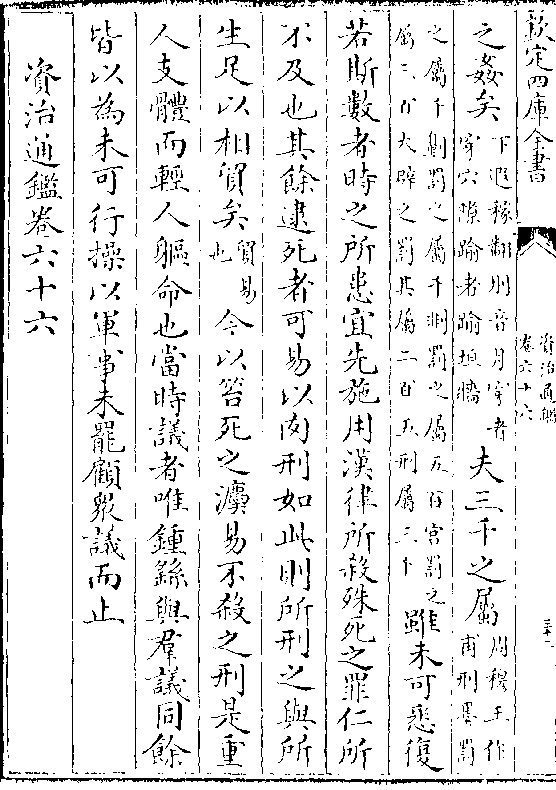 欽定四庫全書
資治通鑑
卷六十六
三十二
之姦矣下遐稼翻刖音月穿者
穿穴隙踰者踰垣牆夫三千之屬周穆王作
甫刑墨罰
之屬千劓罰之屬千剕罰之屬五百宮罰之
屬三百大辟之罰其屬二百五刑屬三千雖未可悉復
若斯數者時之所患宜先施用漢律所殺殊死之罪仁所
不及也其餘逮死者可易以肉刑如此則所刑之與所
生足以相貿矣貿易
也今以笞死之灋易不殺之刑是重
人支體而輕人軀命也當時議者唯鍾繇與羣議同餘
皆以為未可行操以軍事未罷顧衆議而止
資治通鑑卷六十六